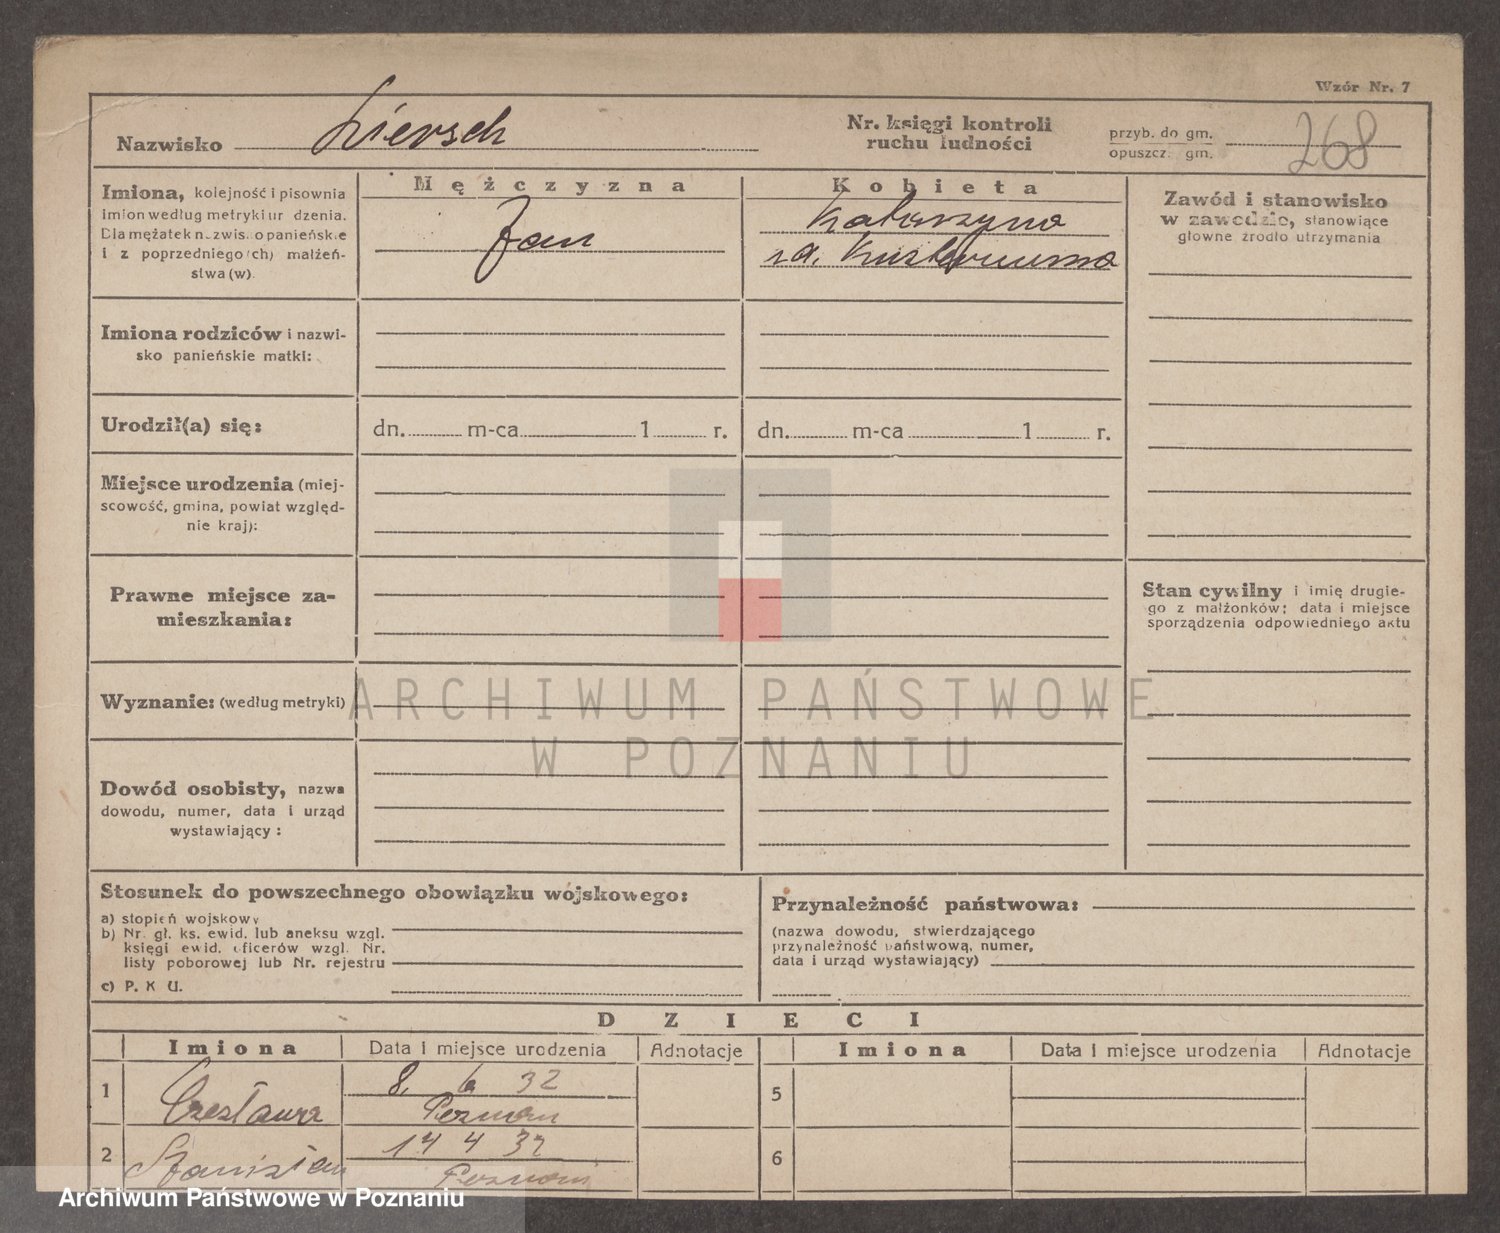 Wzór Nr. 7
Nazwisko Liersch
Nr. księgi kontroli
ruchu ludności
przyb. do gm.
opuszcz. gm.
268
Imiona, kolejność i pisownia
imion według metryki ur dzenia.
Dla mężatek n.zwis.o panieńskie
i z poprzedniego(ch) małżeń-
stwa (w).
Mężczyzna
Jan
Kobieta
Katarzyna
Zawód i stanowisko
w zawodzie, stanowiące
główne źródło utrzymania
Imiona rodziców i nazwi-
sko panieńskie matki:
Urodził(a) się:
dn. m-ca 1 r.
dn. m-ca 1 r.
Miejsce urodzenia (miej-
scowość, gmina, powiat względ-
nie kraj):
Prawne miejsce za-
mieszkania:
Stan cywilny i imię drugie-
go z małżonków; data i miejsce
sporządzenia odpowiedniego aktu
Wyznanie: (według metryki)
ARCHIWUM PAŃSTWOWE
W POZNANIU
Dowód osobisty, nazwa
dowodu, numer, data i urząd
wystawiający :
Stosunek do powszechnego obowiązku wojskowego:
a) stopień wojskowy
b) Nr. gł. ks. ewid. lub aneksu wzgl.
księgi ewid. oficerów wzgl. Nr.
listy poborowej lub Nr. rejestru
c) P. K U.
Przynależność państwowa:
(nazwa dowodu, stwierdzającego
przynależność państwową, numer,
data i urząd wystawiający)
DZIECI
Imiona
Data i miejsce urodzenia
Adnotacje
Imiona
Data i miejsce urodzenia
Adnotacje
1
Czesława
8. 6 32
Poznań
5
2
Stanisław
14 4 32
Poznań
6
Archiwum Państwowe w Poznaniu